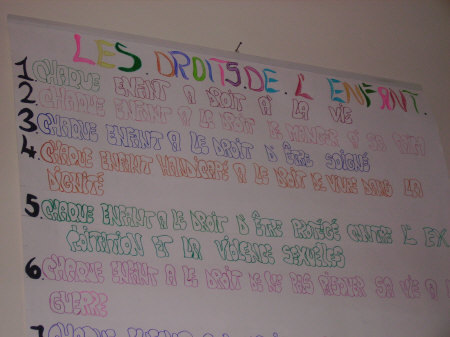 LES DROITS DE L ENFANT.
1 CHAQUE ENFANT A DROIT A LA VIE
2. CHAQUE ENFANT A LE DROIT DE MANGER A SA FAIM
3. CHAQUE ENFANT A LE DROIT D ÊTRE SOIGNÉ
4. CHAQUE ENFANT HANDICAPÉ A LE DROIT DE VIVRE DANS LA
DIGNITÉ
5. CHAQUE ENFANT A LE DROIT D ÊTRE PROTÉGÉ CONTRE L EX
PLOITATION ET LA VIOLENCE SEXUELLES
6. CHAQUE ENFANT A LE DROIT DE NE PAS RISQUER SA VIE A
GUERRE
CHAQUE ENFANT A